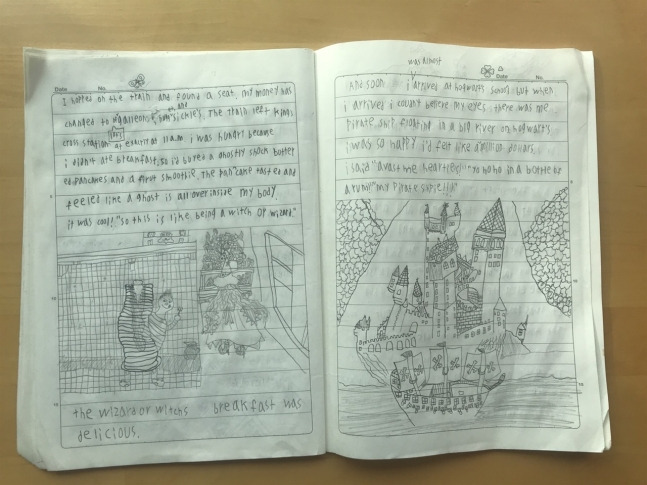 Date No.
I hopped on the train and found a seat. my money has
changed to galleons, and sickles. The train left kings
cross station at exactly at 11 a.m. i was hungry because
i didn't ate breakfast, so i'd buyed a ghostly shock butter
ed pancakes and a first smoothie. The pan cake tasted and
feeled like a ghost is all over inside my body.
it was cool! "so this is like being a witch or wizard."
the wizard or witchs breakfast was
delicious.
Date No.
was almost
And soon i arrived at hogwarts school but when
i arrived i coudn't believe my eyes. there was me
Pirate ship floating in a big river on hogwarts
i was so happy i'd felt like a million dollars.
i said "avast me heartie(s)! "yo ho ho in a bottle of
a rum" my pirate ship